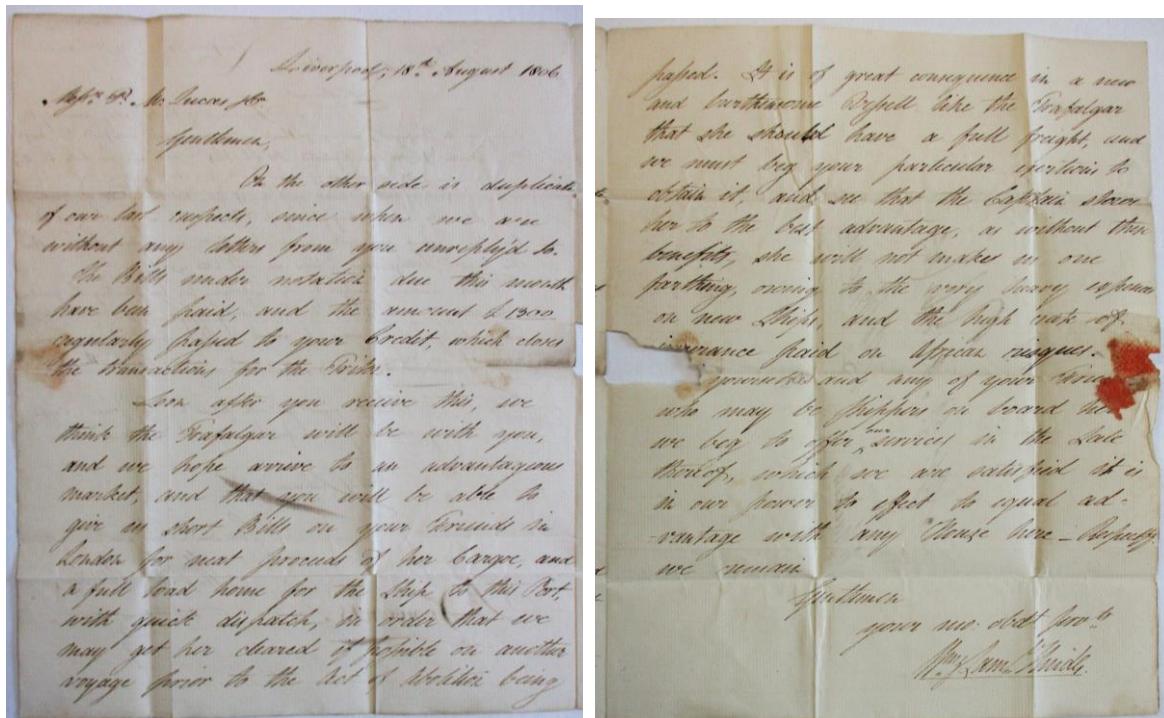 Liverpool, 18th August 1806
Messrs. M. Lucas
Gentlemen,
On the other side is duplicate
of our last respects, since when we are
without any letters from you unreply'd to.
The Bills under notation due this month
have been paid, and the amount £1300
regularly passed to your Credit which closes
the transactions for the Tribe.
Soon after you receive this, we
think the Trafalgar will be with you,
and we hope arrive to an advantageous
market, and that you will be able to
give us short Bills on your Friends in
London for neat proceeds of her Cargoe, and
a full load home for the Ship to this Port,
with quick dispatch, in order that we
may get her cleared if possible on another
voyage prior to the Act of Abolition being
passed. It is of great consequence in a new
and burthensome Vessell like the Trafalgar
that she should have a full freight, and
we must beg your particular exertions to
obtain it, and see that the Captain stows
her to the best advantage, as without these
benefits, she will not makes us one
farthing, owing to the very heavy expences
on new Ships, and the high rate of
insurance paid on African risques.
yourselves and any of your
who may be Shippers on board her
we beg to offer our services in the Sale
thereof, which we are satisfied it is
in our power to effect to equal ad-
-vantage with any House here - Respectfy.
we remain
Gentlemen
your mo. obdt Servts